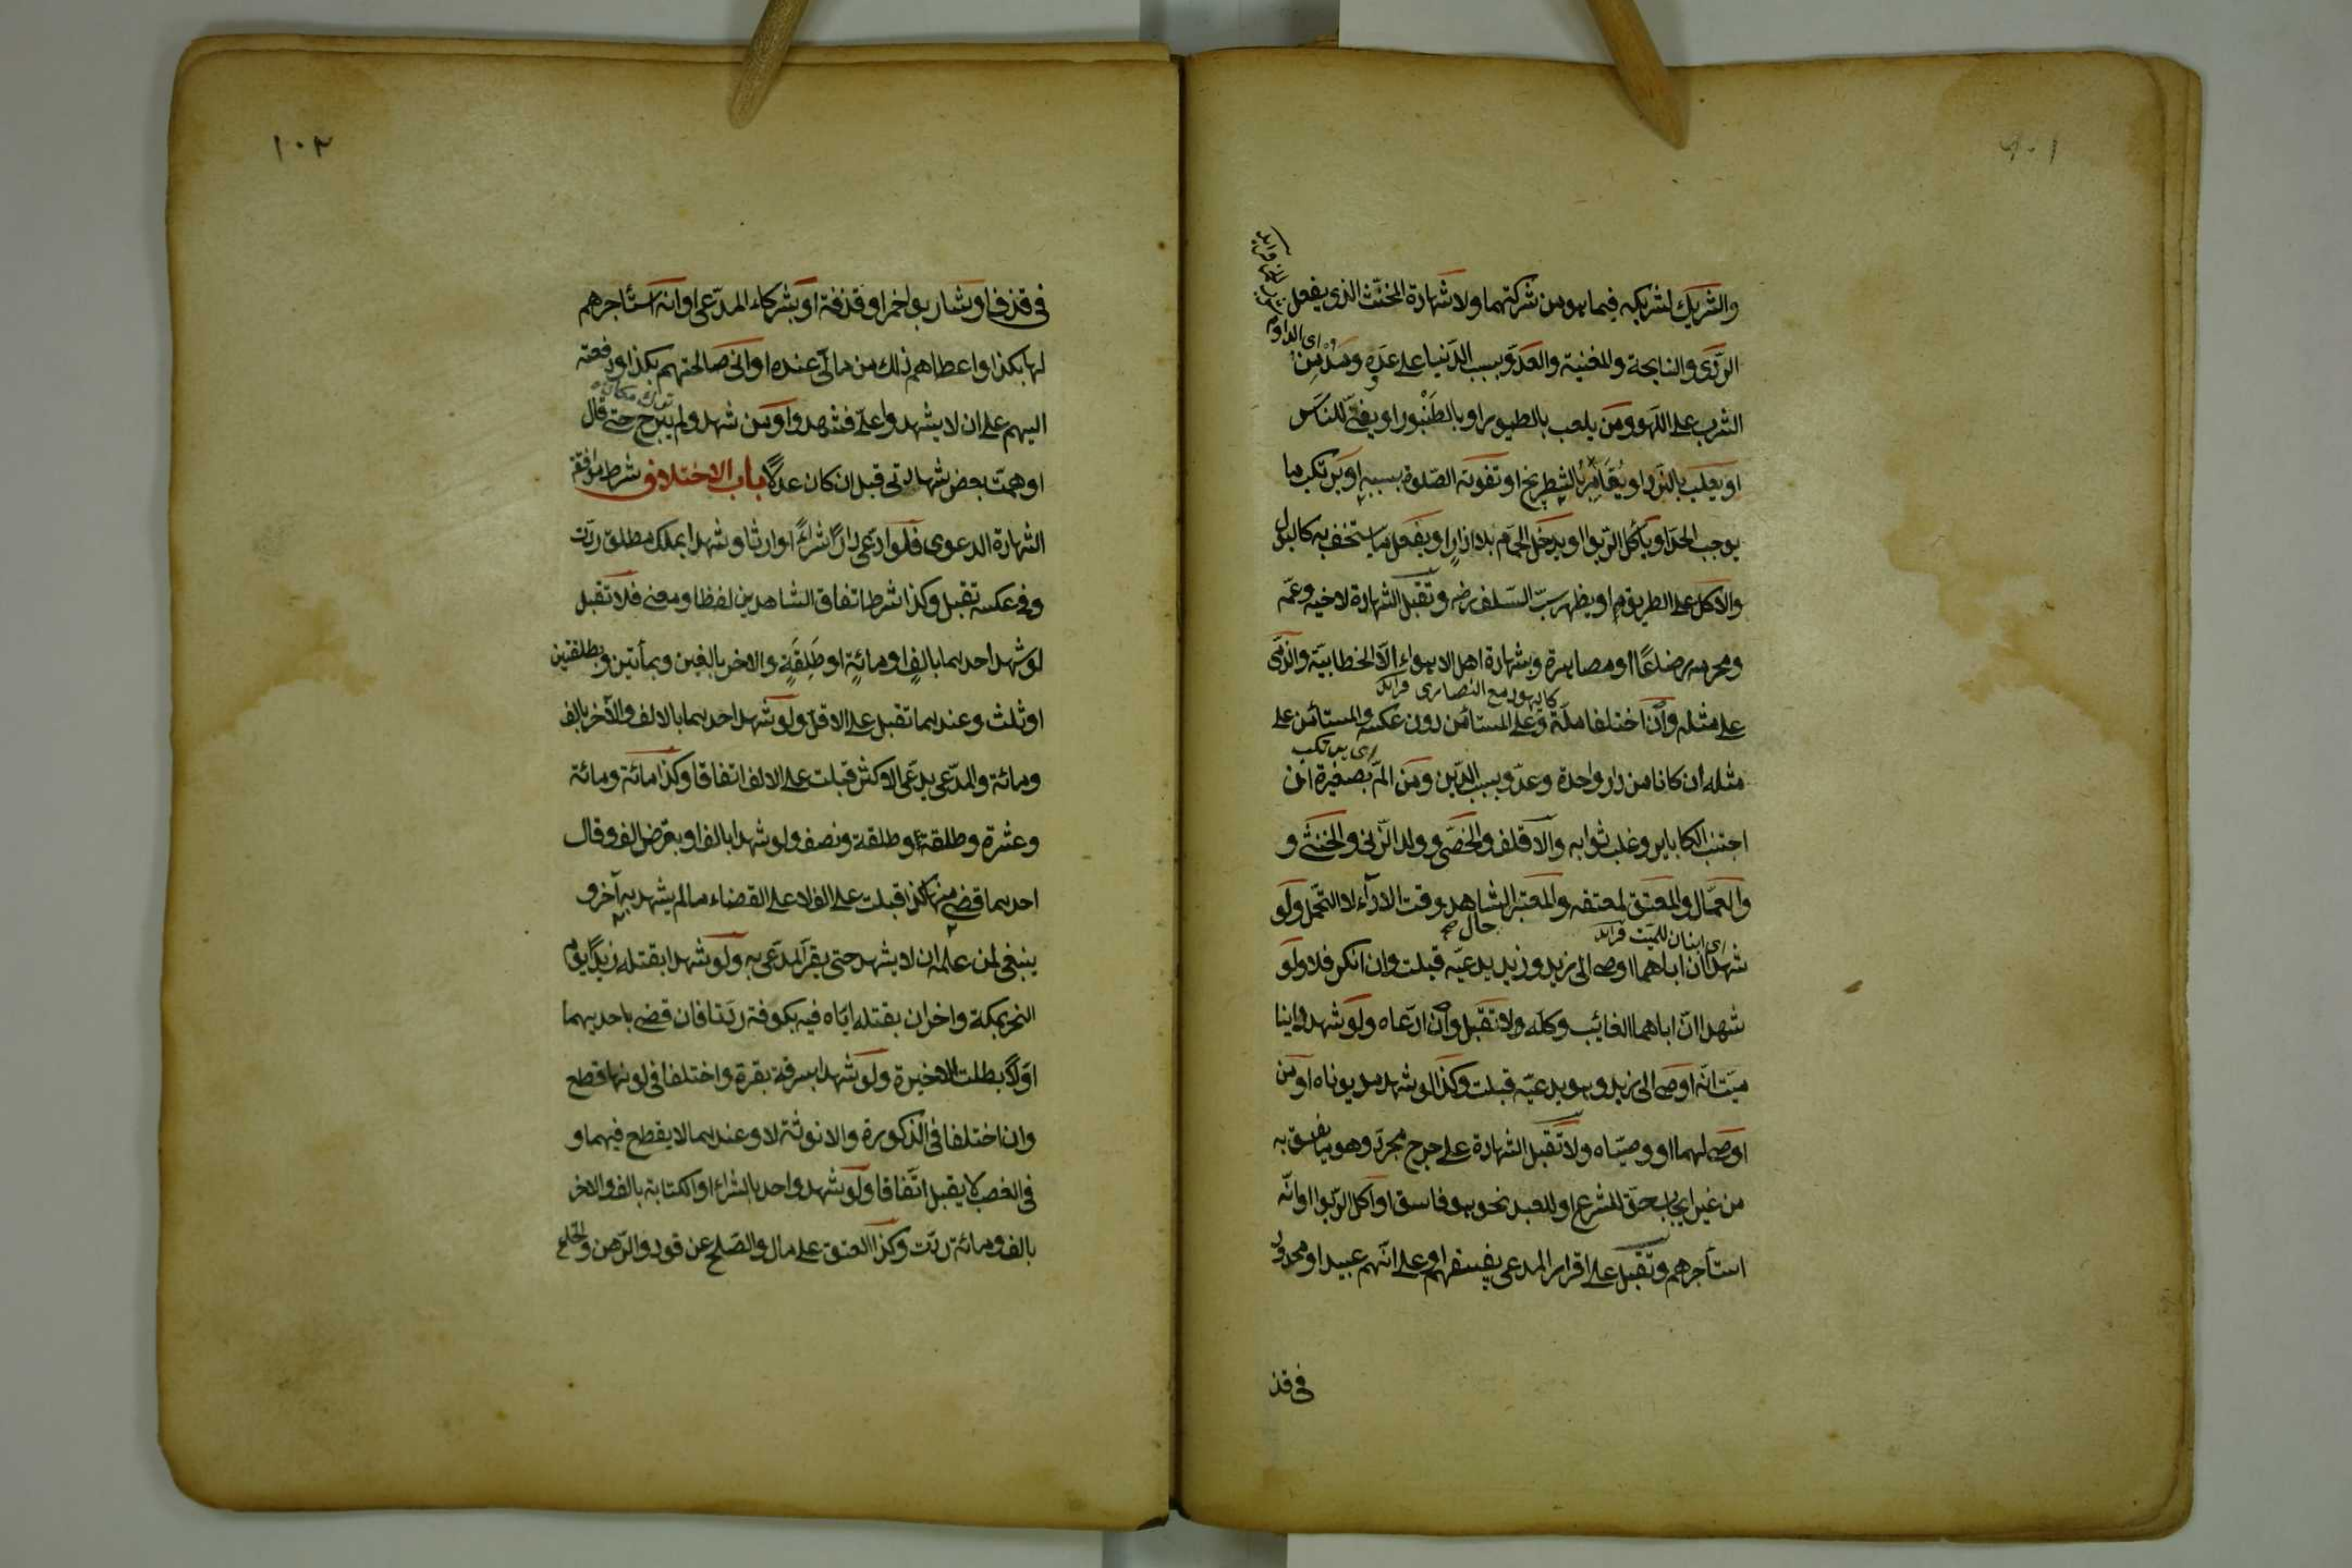 والشريك لشريكه فيما هو من شركتهما ولا شهادة المخنث الذي يفعل
اى المداوم
الردى والنايحة والمغنية والعدو بسبب الدنيا على عدوه ومدمن
الشرب على اللهو ومن يلعب بالطيور او بالطنبور او يغنى للناس
او يلعب بالنرد او يقامر بالشطرنج او تفوته الصلوة بسببه او يرتكب ما
يوجب الحد او يأكل الربوا او يدخل الحمام بلا ازار او يفعل ما يستخف به كالبول
والاكل على الطريق او يظهر سب السلف رضه وتقبل الشهادة لاخيه وعمه
ومحرمه رضاعا او مصاهرة وشهادة اهل الاهواء الا الخطابية والذمى
كاليهود مع النصارى فرائد
على مثله وان اختلفا ملة وعلى المستأمن دون عكسه والمستأمن على
اى يرتكب
مثله ان كانا من دار واحدة وعدو بسبب الدين ومن الم بصغيرة ان
اجتنب الكبایر وغلب ثوابه والاقلف والخصى وولد الزنى والخنثى و
والعمال والمعتق لمعتقه والمعتبر الشاهد وقت الاداء لا التحمل ولو
حال صح
اى ابنان للميت فرائد
شهدا ان اباهما اوصى الى زيد وزيد يدعيه قبلت وان انكر فلا ولو
شهدا ان اباهما الغايب وكله ولا تقبل وان ادعاه ولو شهد داينا
ميت انه اوصى الى زيد وهو يدعيه قبلت وكذا لو شهد مديوناه او من
اوصى لهما او وصياه ولا تقبل الشهادة على جرح مجرد وهو ما يفسق به
من غير ايجاب حق للشرع او للعبد نحو هو فاسق او اكل الربوا او انه
استأجرهم وتقبل على اقرار المدعى بفسقهم او على انهم عبيد او محدود
فى قذ
١٠٢
فى قذف او شاربوا خمر او قذفة او شركاء المدعى او انه استأجرهم
لها بكذا واعطاهم ذلك من مالى عنده او انى صالحتهم بكذا ودفعته
اليهم على ان لا يشهدوا على فشهدوا ومن شهد ولم يبرح حتى قال
اوهمت بعض شهادتى قبل ان كان عدلا باب الاختلاف شرط موافقة
الشهادة الدعوى فلو ادعى دارا شراء او ارثا وشهدا بملك مطلق ردت
وفى عكسه تقبل وكذا شرط اتفاق الشاهدين لفظا ومعنى فلا تقبل
لو شهد احدهما بالف او مائة او طلقة والاخر بالفين وبمأتين وبطلقتين
او ثلث وعندهما تقبل على الاقل ولو شهد احدهما بالالف والآخر بالف
ومائة والمدعى يدعى الاكثر قبلت على الالف اتفاقا وكذا مائة ومائة
وعشرة وطلقة وطلقة ونصف ولو شهدا بالف او بقرض الف وقال
احدهما قضى منها كذا قبلت على الالف لا على القضاء ما لم يشهد به آخر و
ينبغى لمن علمه ان لا يشهد حتى يقر المدعى به ولو شهدا بقتله زيدا يوم
النحر بمكة واخران بقتله اياه فيه بكوفة ردتا فان قضى باحديهما
اولا بطلت الاخيرة ولو شهدا بسرقة بقرة واختلفا فى لونها قطع
وان اختلفا فى الذكورة والانوثة لا وعندهما لا يقطع فيهما و
فى الغصب لا يقبل اتفاقا ولو شهد واحد بالشراء او الكتابة بالف والاخر
بالف ومائة ردت وكذا العتق على مال والصلح عن قود والرهن والخلع